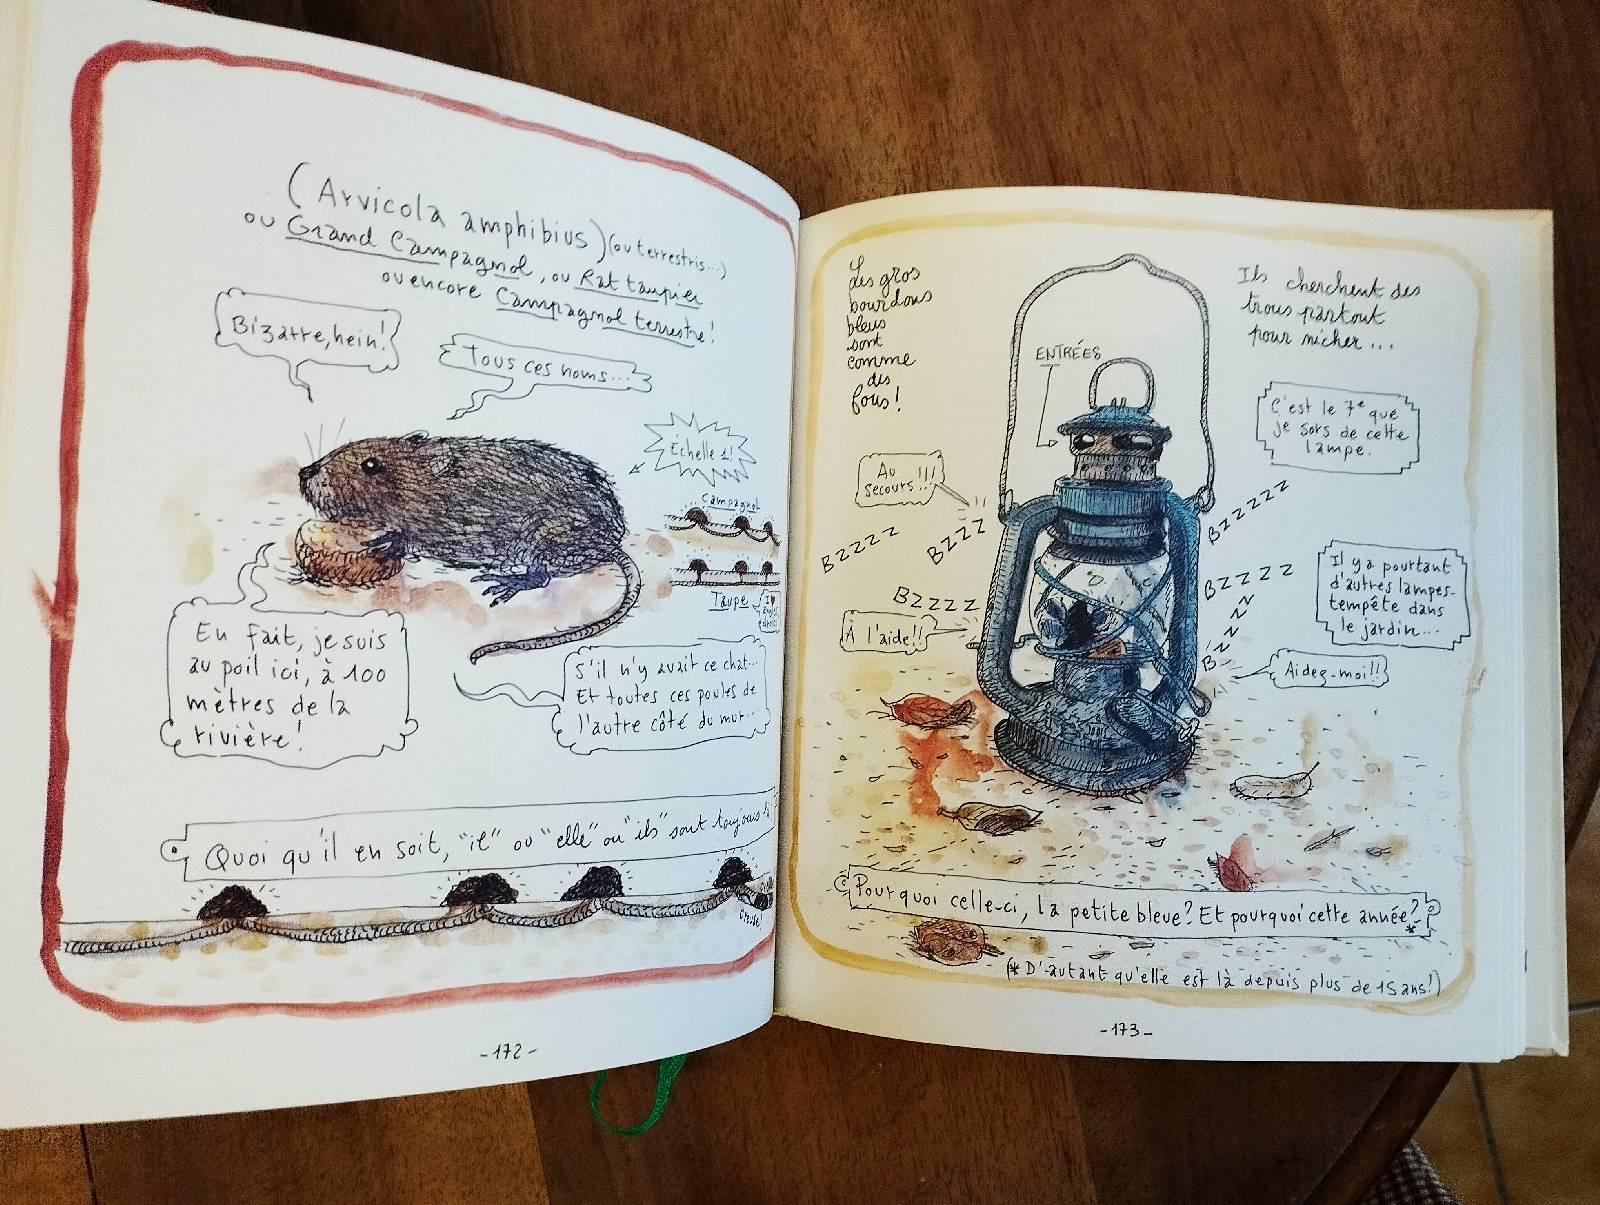 (Arvicola amphibius) (ou terrestris...)
ou Grand Campagnol, ou Rat taupier
ou encore Campagnol terrestre!
Bizarre, hein!
Tous ces noms...
Échelle 1!
Campagnol
Taupe
En fait, je suis
au poil ici, à 100
mètres de la
rivière!
S'il n'y avait ce chat...
Et toutes ces poules de
l'autre côté du mur...
Quoi qu'il en soit, "il" ou "elle" ou "ils" sont toujours
-172-
Les gros
bourdons
bleus
sont
comme
des
fous!
ENTRÉES
Ils cherchent des
trous partout
pour nicher...
C'est le 7e que
je sors de cette
lampe.
Au
secours!!!
BZZZZ
BZZZ
BZZZZZ
BZZZZ
À l'aide!!
BZZZZ
BZZZZZ
Il y a pourtant
d'autres lampes-
tempête dans
le jardin...
Aidez-moi!!
Pourquoi celle-ci, la petite bleue? Et pourquoi cette année?*
(* D'autant qu'elle est là depuis plus de 15 ans!)
-173-